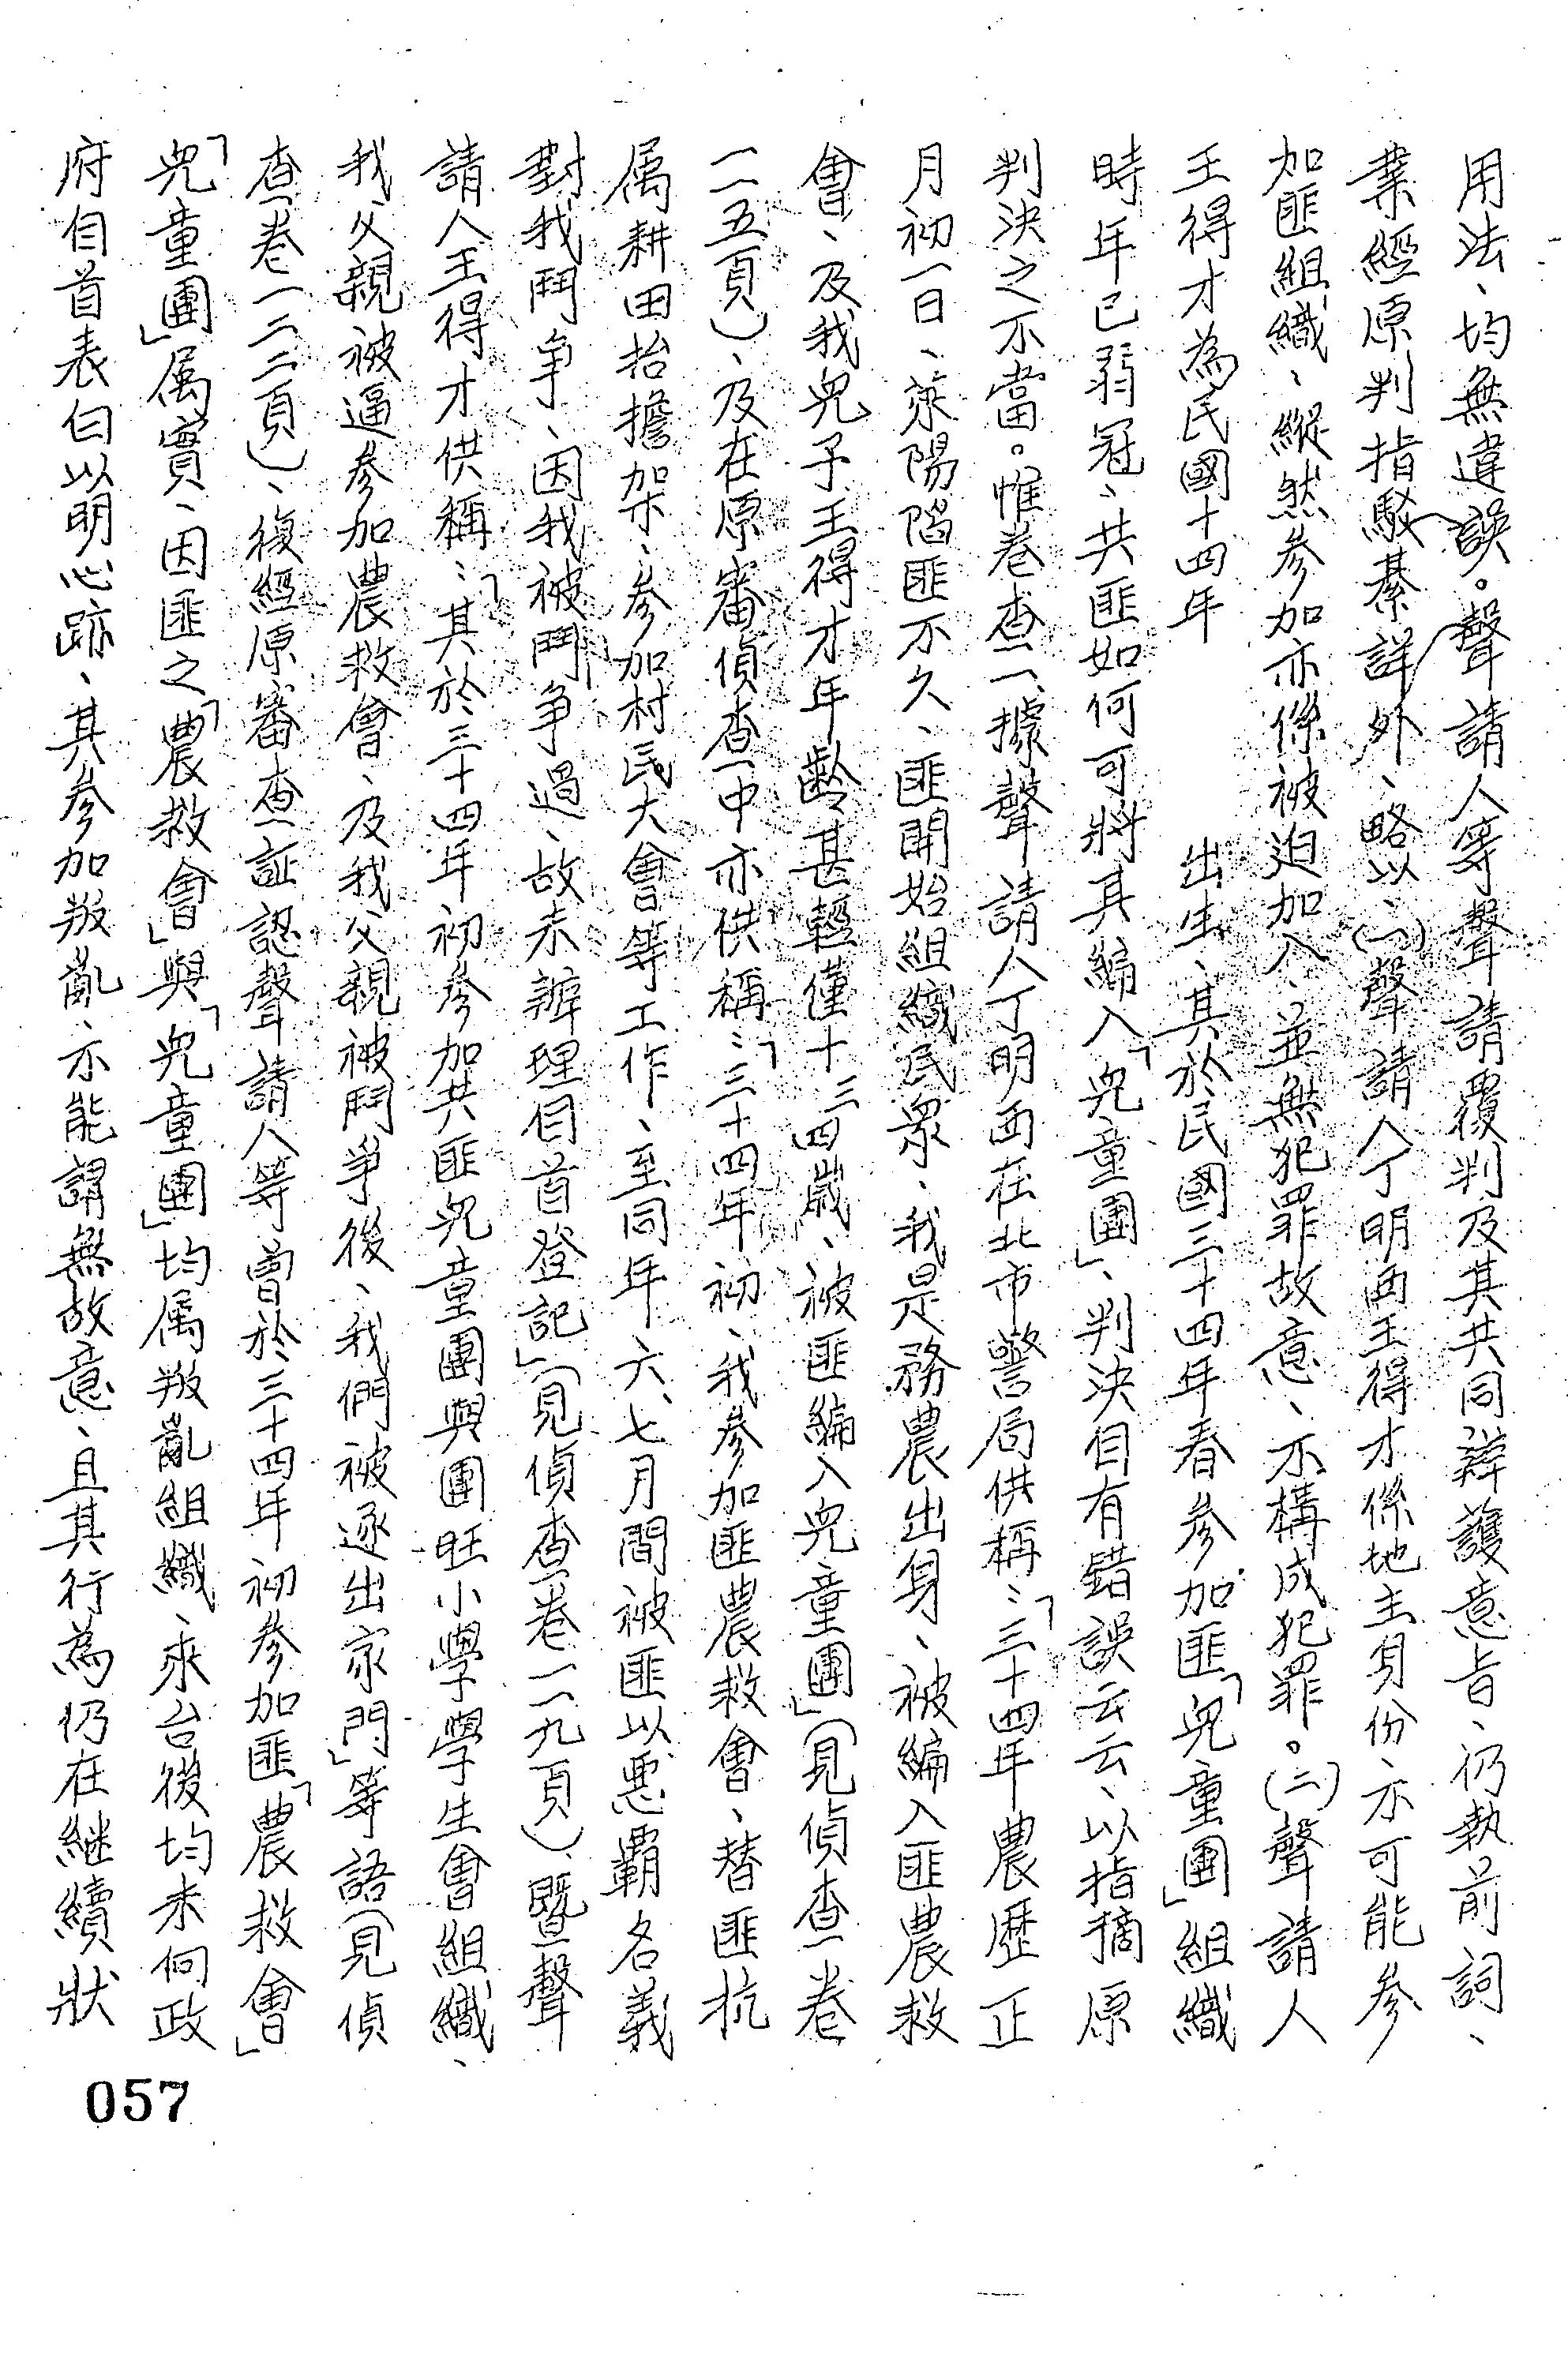 用法、均無違誤。聲請人等聲請覆判及其共同辯護意旨、仍執前詞、
業經原判指駁綦詳外、略以、(一)聲請人丁明西王得才係地主身份、不可能參
加匪組織、縱然參加亦係被迫加入、並無犯罪故意、不構成犯罪。(二)聲請人
王得才為民國十四年 出生、其於民國三十四年春參加匪「兒童團」組織
時年已弱冠、共匪如何可將其編入「兒童團」、判決自有錯誤云云、以指摘原
判決之不當。惟卷查、據聲請人丁明西在北市警局供稱:「三十四年農歷正
月初一日、萊陽陷匪不久、匪開始組織民眾、我是務農出身、被編入匪農救
會、及我兒子王得才年齡甚輕僅十三四歲、被匪編入兒童團」(見偵查卷
一一五頁)、及在原審偵查中亦供稱:「三十四年初、我參加匪農救會、替匪抗
屬耕田抬擔架、參加村民大會等工作、至同年六、七月間被匪以惡霸名義
對我鬥爭、因我被鬥爭過、故未辦理自首登記」(見偵查卷一一九頁)、暨聲
請人王得才供稱:「其於三十四年初參加共匪兒童團與團旺小學學生會組織、
我父親被逼參加農救會、及我父親被鬥爭後、我們被逐出家門」等語(見偵
查卷一二二頁)、復經原審查証認聲請人等曾於三十四年初參加匪「農救會」
「兒童團」屬實、因匪之「農救會」與「兒童團」均屬叛亂組織、來台後均未向政
府自首表白以明心跡、其參加叛亂、不能謂無故意、且其行為仍在繼續狀
057